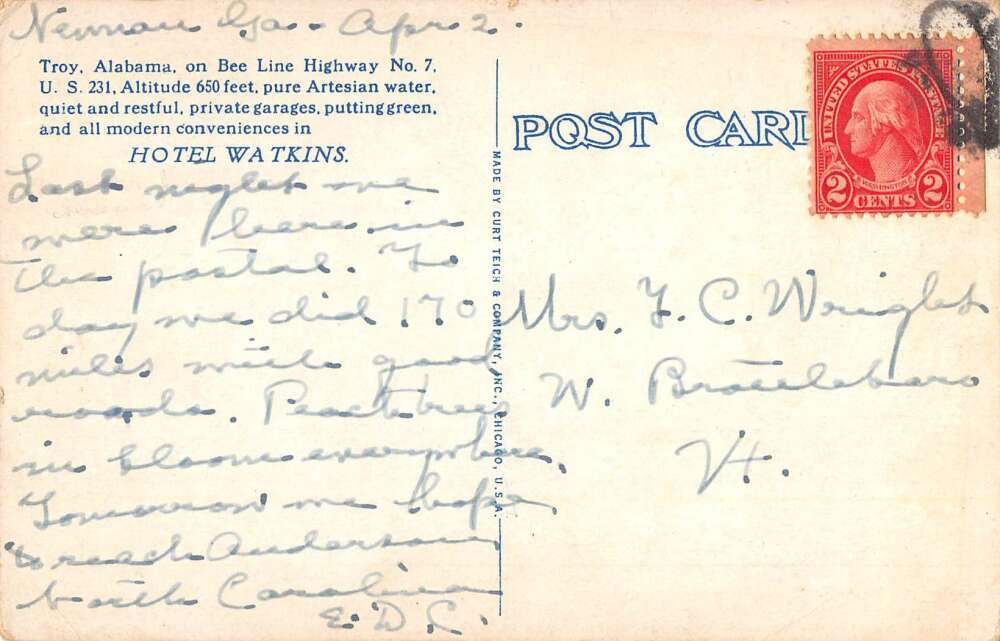 Newnan Ga - Apr 2.
Troy, Alabama, on Bee Line Highway No. 7,
U. S. 231, Altitude 650 feet, pure Artesian water,
quiet and restful, private garages, putting green,
and all modern conveniences in
HOTEL WATKINS.
Last night we
were here in
the postal. To
day we did 170
miles with good
roads. Peach trees
in bloom everywhere.
Tomorrow we hope
to reach Anderson,
North Carolina
E. D. C.
MADE BY CURT TEICH & COMPANY, INC., CHICAGO, U.S.A.
POST CARD
UNITED STATES POSTAGE
WASHINGTON
2 CENTS 2
Mrs. F. C. Wright
W. Brattleboro
Vt.